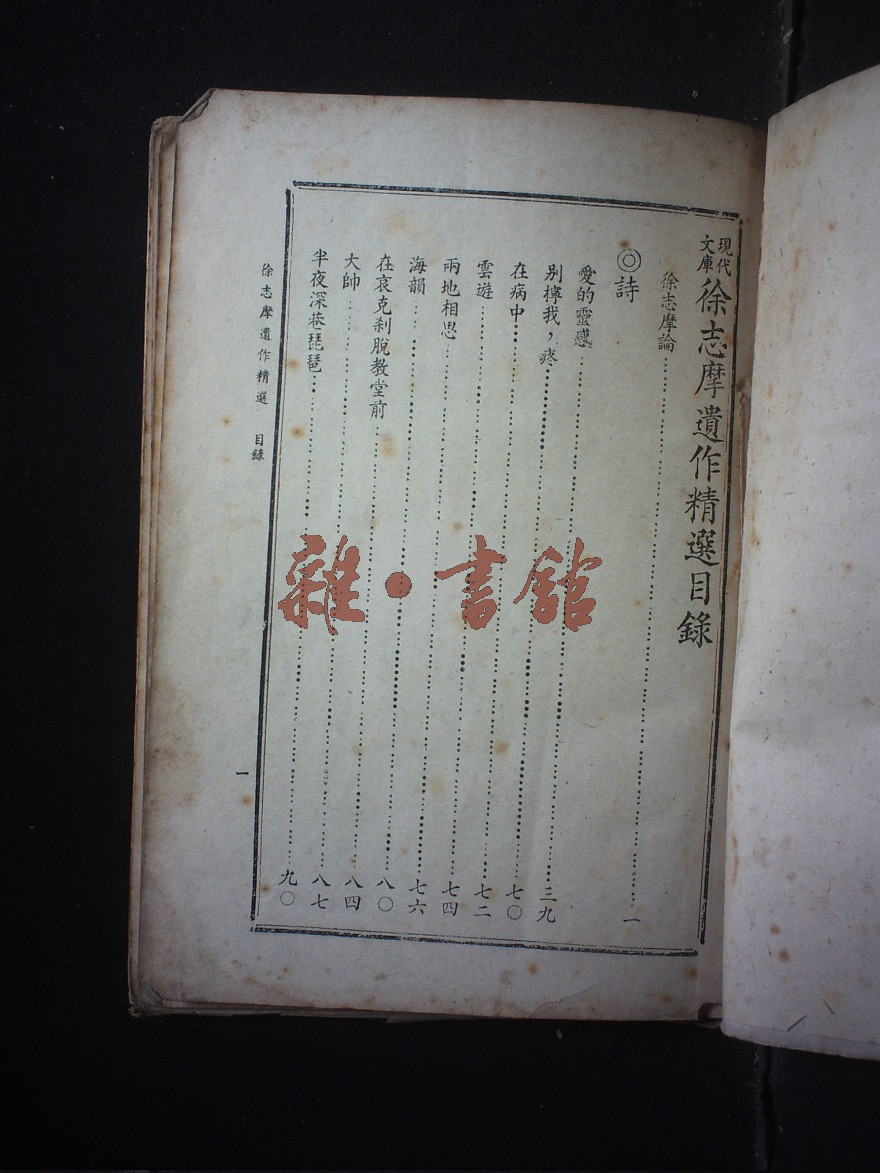 現代文庫 徐志摩遺作精選目錄
徐志摩論……一
◎詩
愛的靈感……三九
別擰我，疼……七〇
在病中……七二
雲遊……七四
兩地相思……七六
海韻……八〇
在哀克刹脫教堂前……八四
大帥……八七
半夜深巷琵琶……九〇
徐志摩遺作精選 目錄
一
雜·書館